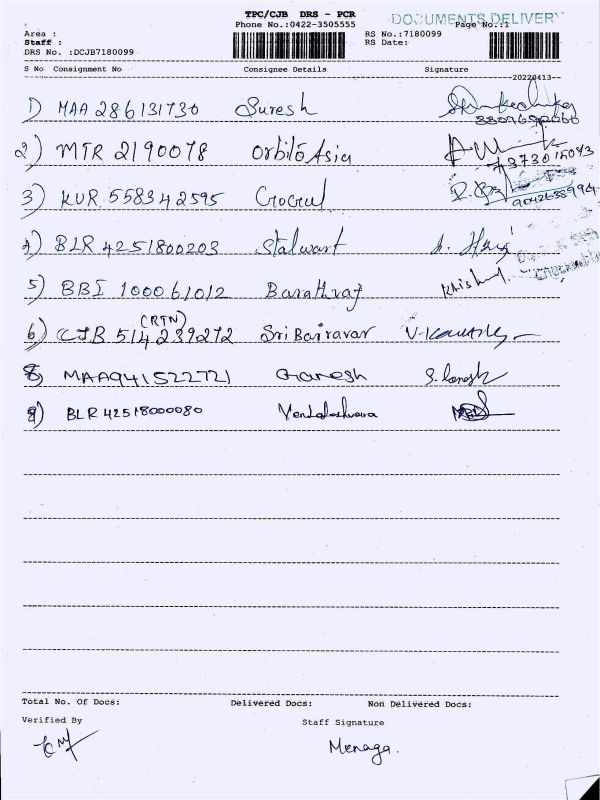 TPC/CJB DRS - PCR DOCUMENTS DELIVERY
Phone No.:0422-3505555 Page No.:1
Area : RS No.:7180099
Staff : RS Date:
DRS No. :DCJB7180099
S No Consignment No Consignee Details Signature
20220413
1) MAA 286131730 Suresh
2) MTR 2190078 Orbito Asia
3) KUR 558342595
4) BLR 4251800203 Stalwart
5) BBI 100061012 Barathraj
(RTN)
6) CJB 514239272 Sri Bairavar
8) MAA941522721 Ganesh
9) BLR 42518000080
Total No. Of Docs: Delivered Docs: Non Delivered Docs:
Verified By Staff Signature
Menaga.